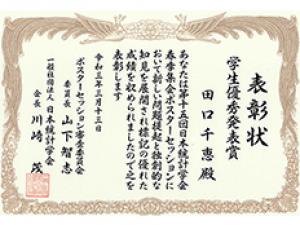 表彰状
学生優秀発表賞
田口千恵殿
あなたは第十五回日本統計学会
春季集会ポスターセッションに
おいて新しい問題提起と独創的な
知見を展開され標記の優れた
成績を収められましたので之を
表彰します
令和三年三月十三日
ポスターセッション審査委員会
委員長 山下智志
一般社団法人 日本統計学会
会長 川崎 茂